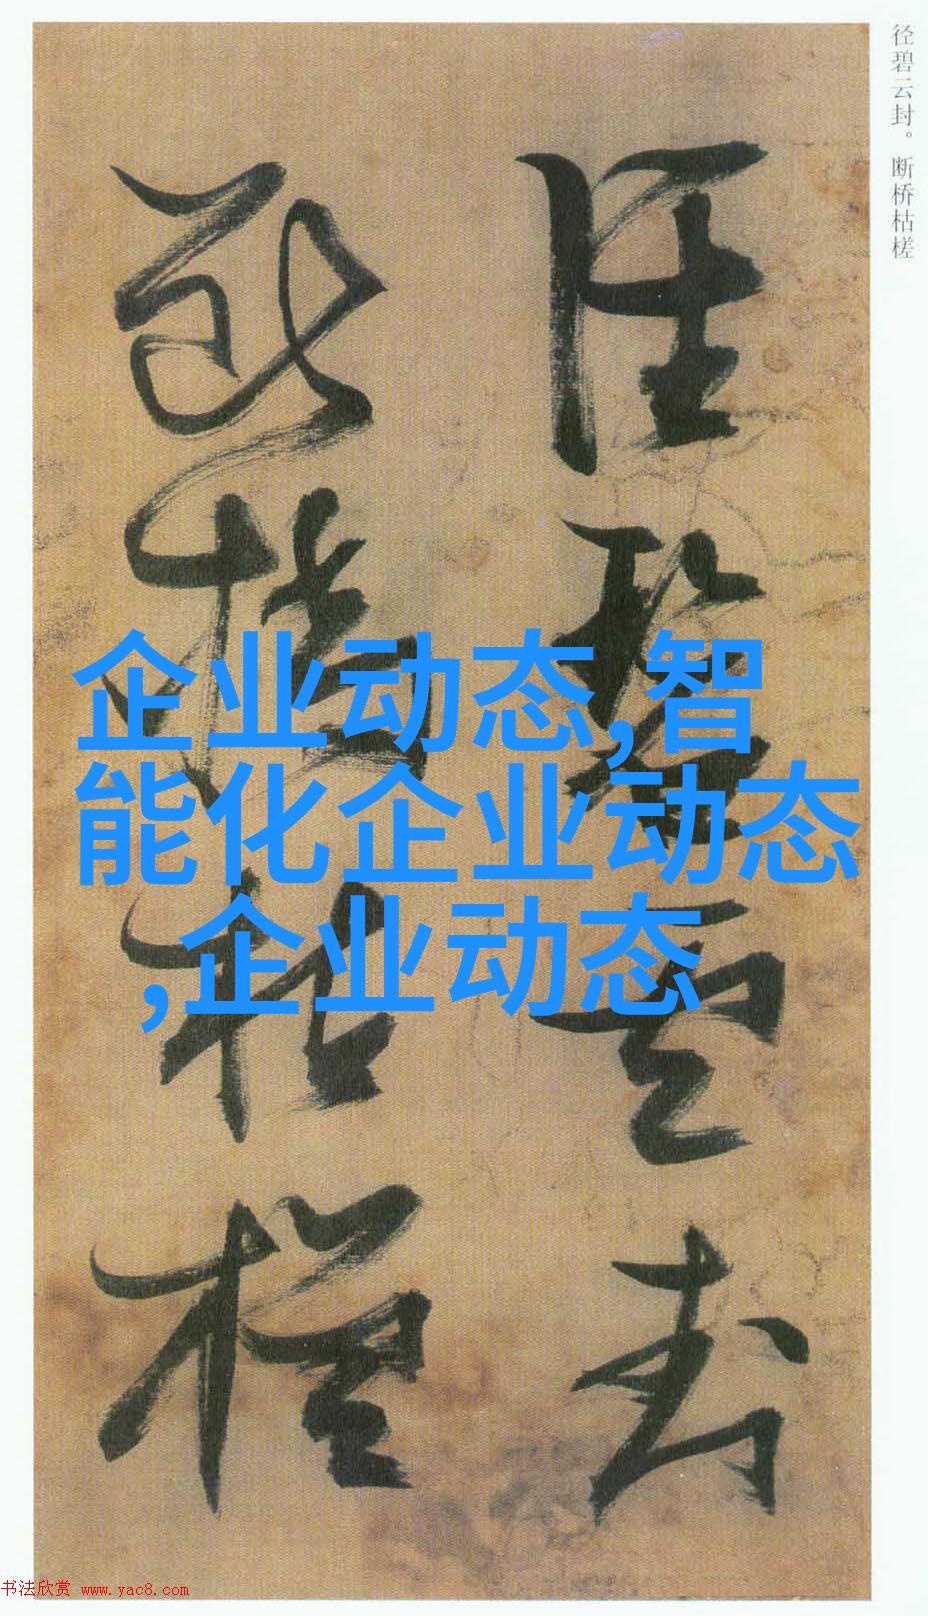 径碧云封。断桥枯槎
径碧云封
断桥枯槎
企业动态,智
能化企业动态
,企业动态
书法欣赏 www.yac8.com